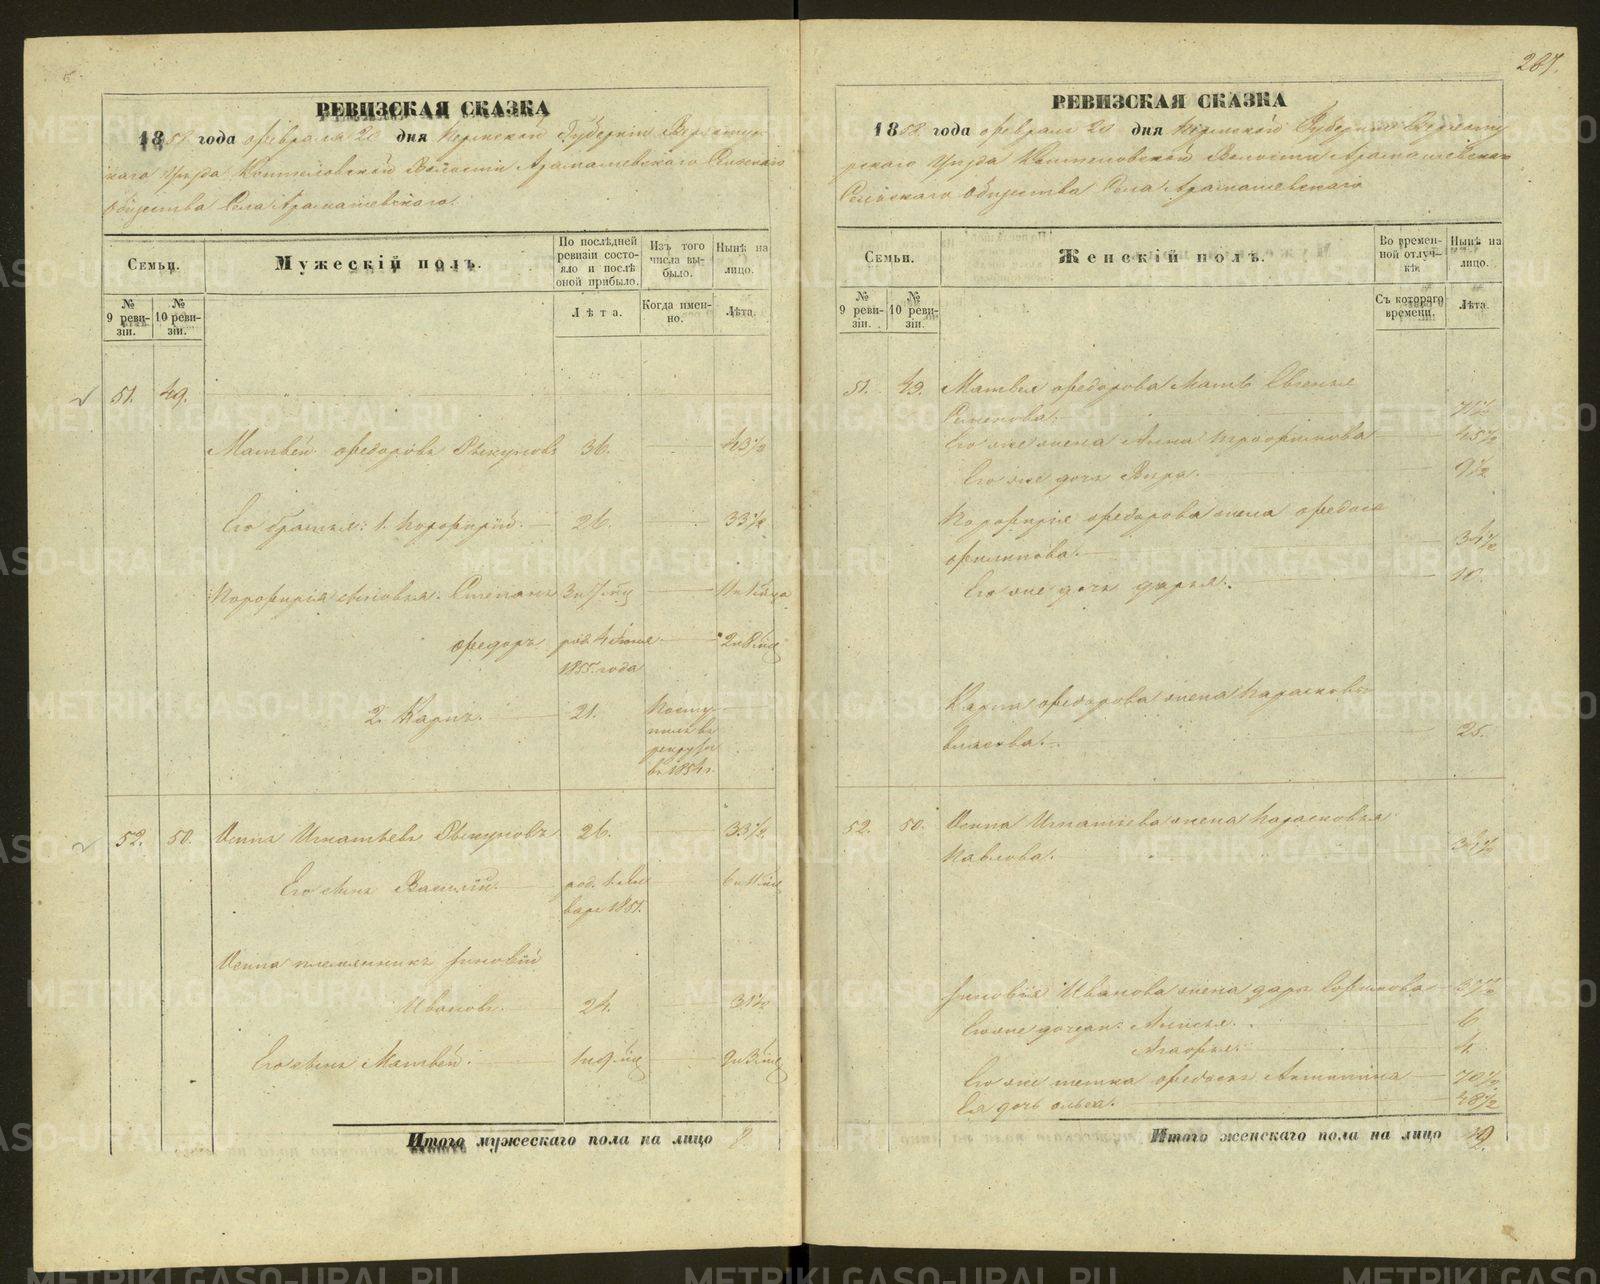 РЕВИЗСКАЯ СКАЗКА
1858 года февраля 20 дня Пермской Губернiи Верхотур-
скаго уѣзда Коптеловской Волости Арамашевскаго Сельскаго
Общества Села Арамашевскаго.
Семьи.
Мужескiй полъ.
По послѣдней ревизiи состояло и послѣ оной прибыло.
Изъ того числа выбыло.
Нынѣ на лицо.
№ 9 ревизiи.
№ 10 ревизiи.
Лѣта.
Когда именно.
Лѣта.
51. 49.
Матвей Федоровъ Рыкуновъ 36. 43½
Его братья: 1. Порфирiй. 26. 33½
Порфирiя сыновья: Степанъ 3 и 7 мц 11 и 1 мца
Федоръ род. 4 Iюня 2 и 8 мц
1855 года
2. Карпъ. 21. Посту-
пилъ въ
рекруты
въ 1854 г.
52. 50. Осипъ Игнатьевъ Рыкуновъ 26. 33½
Его сынъ Василiй. род. Ян- 6 и 11 мц
варе 1851.
Осипа племянникъ Зиновiй
Ивановъ. 24. 31½
Его сынъ Матвей. 1 и 9 мц 9 и 3 мц
Итого мужескаго пола на лицо 8.
267.
РЕВИЗСКАЯ СКАЗКА
1858 года февраля 20 дня Пермской Губернiи Верхоту-
рскаго уѣзда Коптеловской Волости Арамашевскаго
Сельскаго Общества Села Арамашевскаго
Семьи.
Женскiй полъ.
Во временной отлучкѣ.
Нынѣ на лицо.
№ 9 ревизiи.
№ 10 ревизiи.
Съ котораго времени.
Лѣта.
51. 49. Матвея Федорова мать Евгенья
Семенова. 71½
Его же жена Анна Трофимова 45½
Его же дочь Вѣра. 9½
Порфирiя Федорова жена Федося
Филипова. 34½
Его же дочь Дарья. 10.
Карпа Федорова жена Парасковья
Власова. 25.
52. 50. Осипа Игнатьева жена Парасковья
Павлова. 34½
Зиновiя Иванова жена Дарья Софонова 37½
Его же дочери: Анисья. 6
Агафья. 4.
Его же тетка Федосья Антипина 70½
Ея дочь Ольга. 48½
Итого женскаго пола на лицо 12.
METRIKI.GASO-URAL.RU